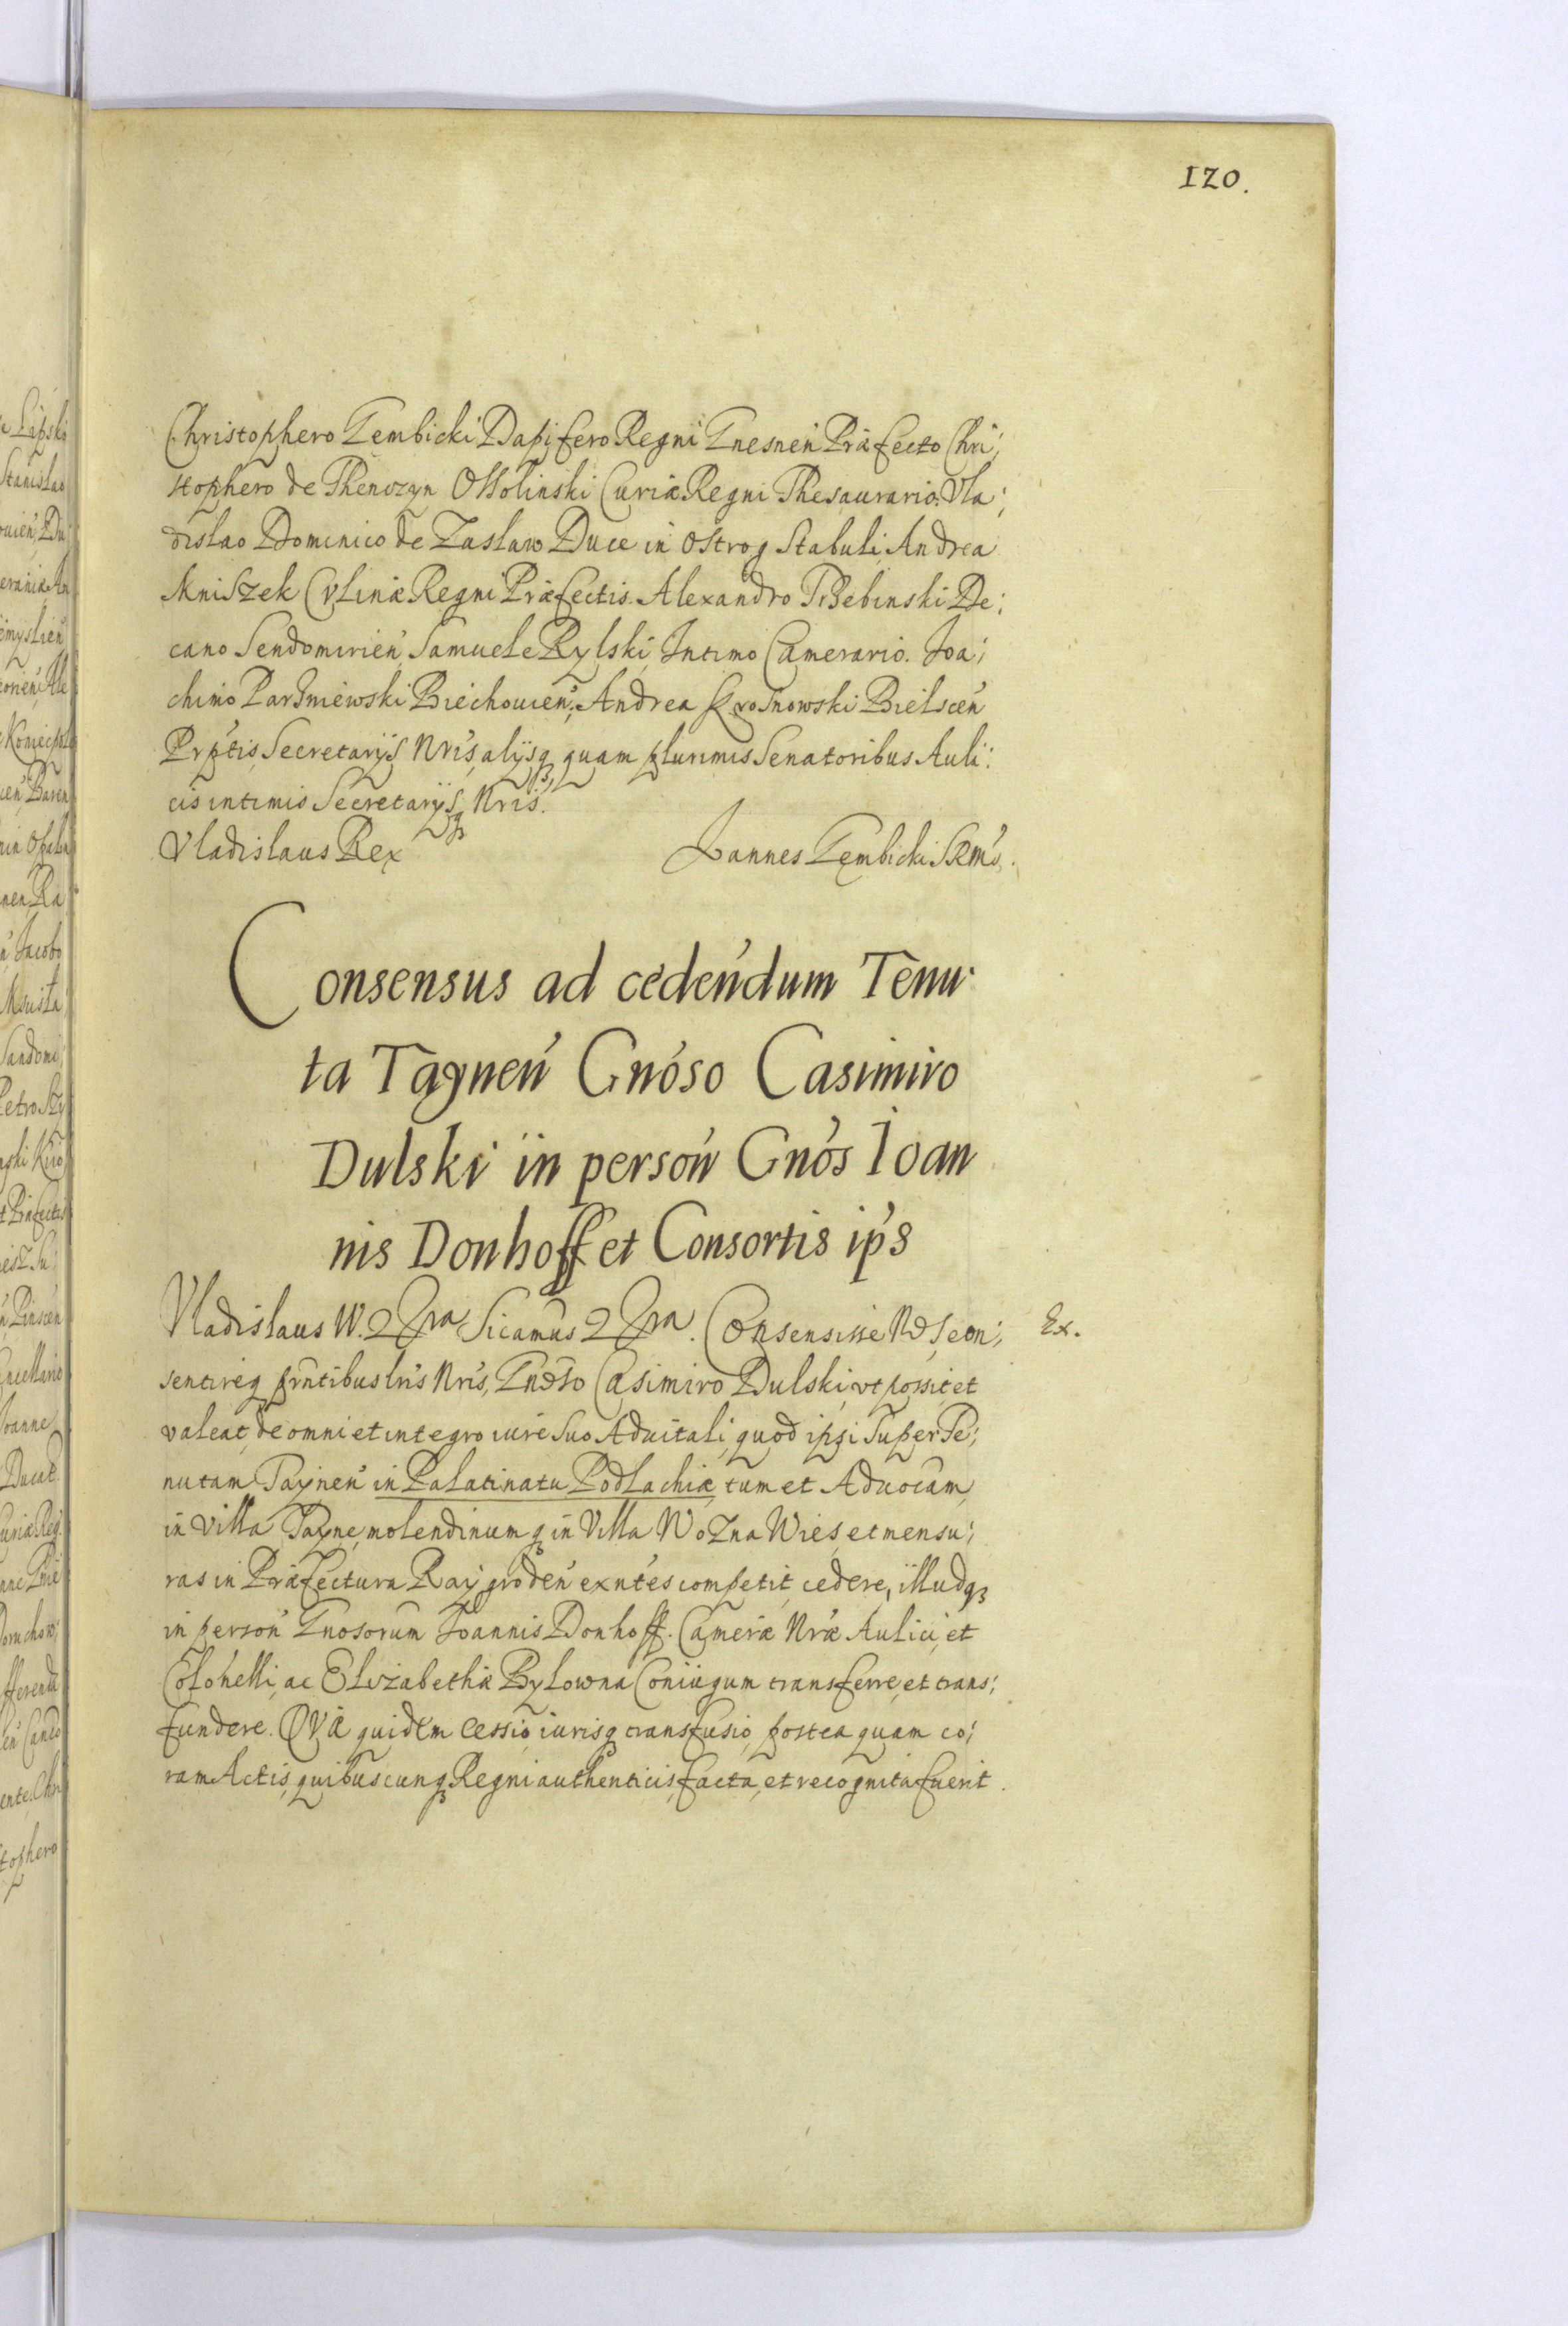 120.
Christophero Gembicki Dapifero Regni Gnesnen̕ Præfecto Chri;
stophero de Thenczyn Ossolinski Curiæ Regni Thesaurario. Vla;
dislao Dominico de Zaslaw Duce in Ostrog Stabuli, Andrea
Mniszek Culinæ Regni Præfectis. Alexandro Trzebinski De;
cano Sendomirien̕, Samuele Rylski, Intimo Camerario. Joa;
chimo Parzniewski Biechouien̕, Andrea Krosnowski Bielscen̕
Prptis, Secretarijs Nris, alijsq quam plurimis Senatoribus Auli:
cis intimis Secretarijsq Nris.
Vladislaus Rex
Joannes Gembicki SRMs.
Consensus ad cedendum Tenu
ta Taynen̕ Gnoso Casimiro
Dulski in person̕ Gnos Ioan
nis Donhoff et Consortis ips
Vladislaus IV. Sicamus Consensisse Nos, con;
Ex.
sentireq prntibus lris Nris, Gnoso Casimiro Dulski, vt possit et
valeat, de omni et integro iure suo Aduitali, quod ipsi super Te;
nutam Taynen̕ in Palatinatu Podlachiæ, tum et Aduocam,
in Villa Tayne, molendinumq in Villa Wozna Wies, et mensu;
ras in Præfectura Raygroden̕ exntes competit, cedere, illudq3
in person̕ Gnosorum Joannis Donhoff. Cameræ Nræ Aulici, et
Colonelli, ac Elizabethæ Bylowna Coniugum transferre, et trans;
fundere. QVÆ quidem Cessio, iurisq transfusio, postea quam co;
ram Actis, quibuscunq Regni authenticis, facta, et recognita fuerit.